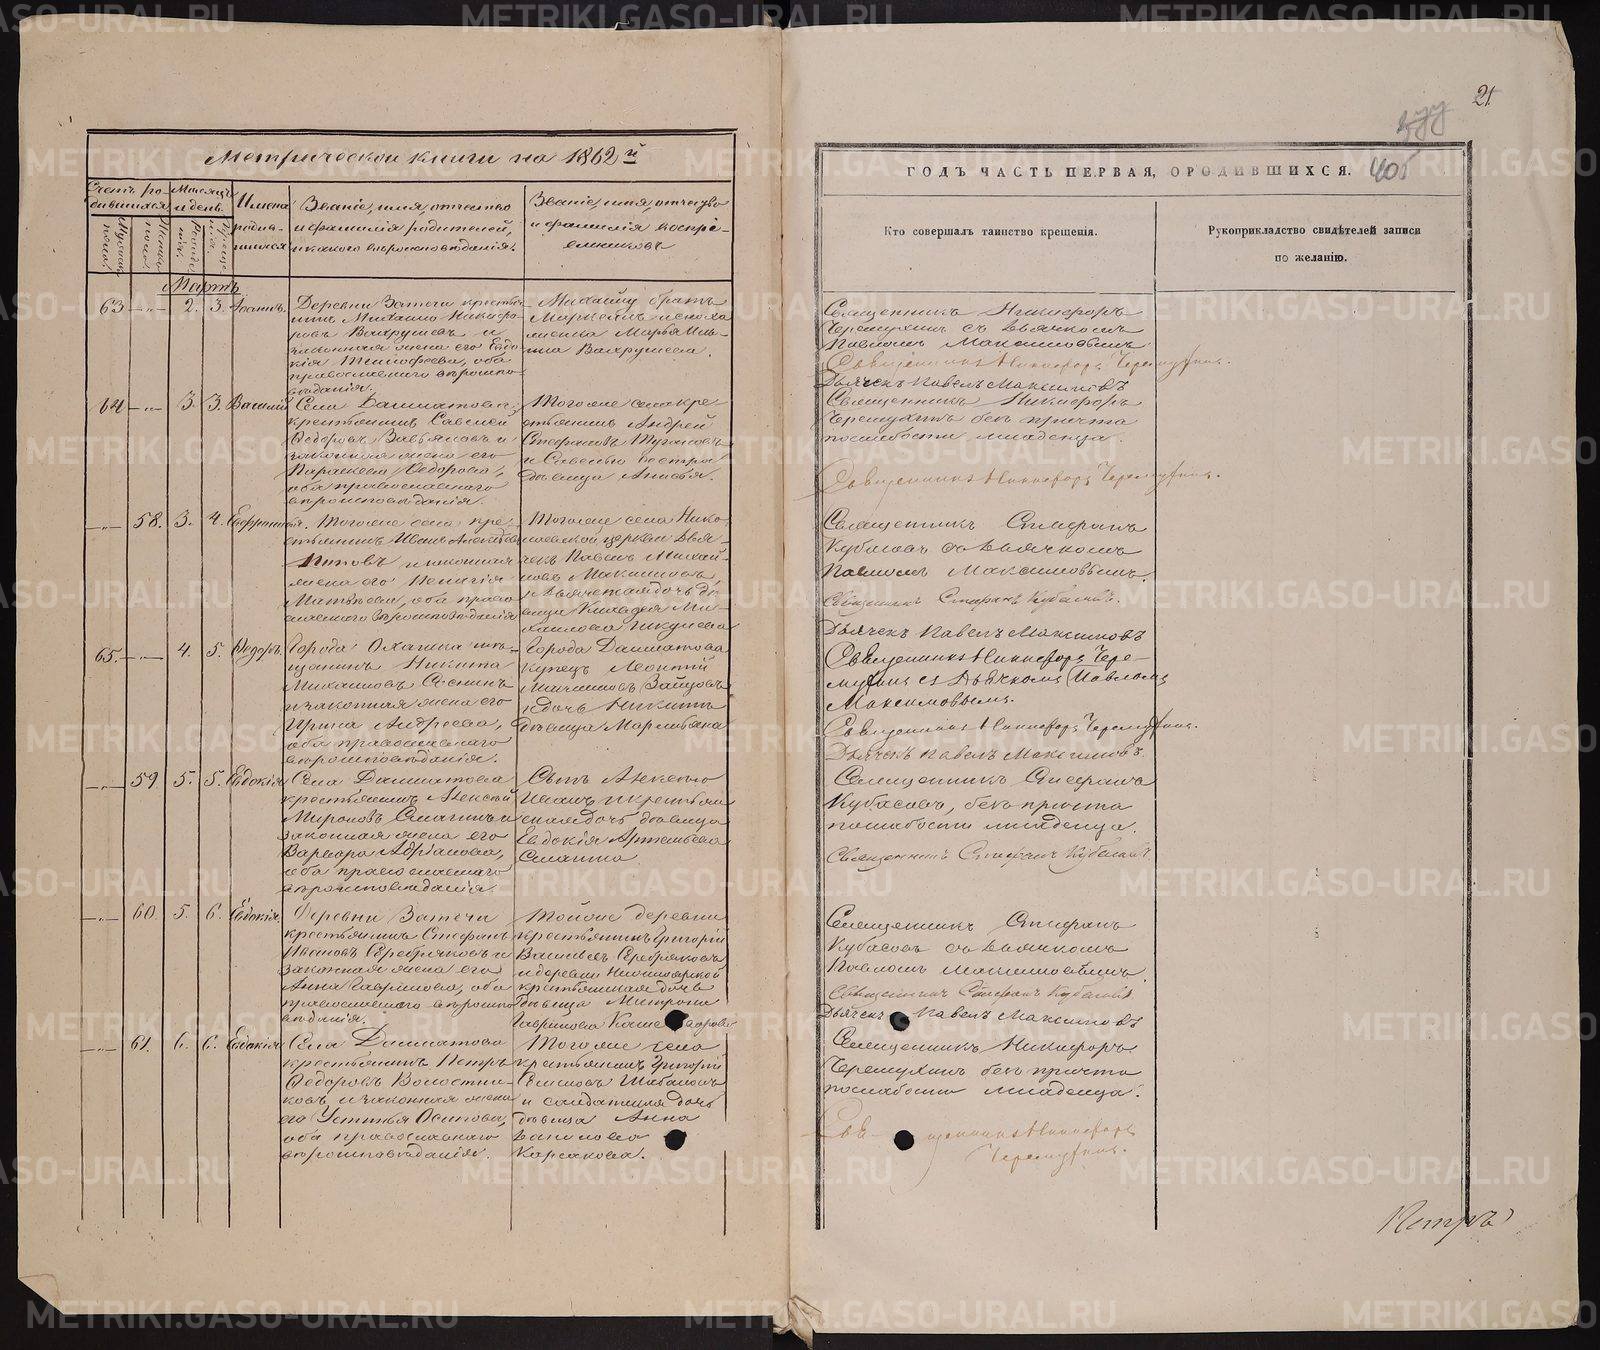 21
405
Метрической книги на 1862й
Счетъ ро-
дившихся
Мѣсяцъ
и день.
Имена
родив-
шихся
Званіе, имя, отчество
и фамилія родителей,
и какого вѣроисповѣданія.
Званіе, имя, отчество
и фамилія воспрі-
емниковъ
Мартъ.
63 2. 3. Іоаннъ.
Деревни Затечи крестья-
нинъ Михаило Никифо-
ровъ Вахрушевъ и
законная жена его Евдо-
кія Тимофеева, оба
православнаго вѣроиспо-
вѣданія.
64 3. 3. Василій
Села Далматова
крестьянинъ Савелей
Ѳедоровъ Завьяловъ и
законная жена его
Параскева Ѳедорова,
оба православнаго
вѣроисповѣданія.
Тогоже села кре-
стьянинъ Андрей
Стефановъ
и Савелью сестра
дѣвица
58. 3. 4.
Тогоже села кре-
стьянинъ Иванъ
Поповъ и законная
жена его Пелагія
Матвѣева, оба право-
славнаго вѣроисповѣданія
Тогоже села Нико-
лаевской церкви Дья-
чекъ Павелъ Михай-
ловъ Максимовъ,
65. 4. 5. Ѳедоръ.
Города Оханска мѣ-
щанинъ Никита
Михаиловъ
и законная жена его
Ирина Андреева,
оба православнаго
вѣроисповѣданія.
Города Далматова
купецъ Леонтій
Зайцовъ
и дочь Никиты
дѣвица Марембяна
59. 5. 5. Евдокія
Села Далматова
крестьянинъ Алексѣй
Мироновъ и
законная жена его
Варвара Адріанова,
оба православнаго
вѣроисповѣданія.
Сынъ Алексѣю
Иванъ и крестьян-
ская дочь дѣвица
Евдокія Артемьева
60. 5. 6. Евдокія.
Деревни Затечи
крестьянинъ Стефанъ
Ивановъ Серебряковъ и
законная жена его
Анна Гаврилова, оба
православнаго вѣроиспо-
вѣданія.
Тойже деревни
крестьянинъ Григорій
Васильевъ Серебряковъ
и деревни Нижнеярской
крестьянская дочь
дѣвица Матрона
Гаврилова
61. 6. 6. Евдокія
Села Далматова
крестьянинъ Петръ
Ѳедоровъ
ковъ и законная жена
его Устинья Осипова,
оба православнаго
вѣроисповѣданія.
Тогоже села
крестьянинъ Григорій
Семеновъ Шабановъ
и солдатская дочь
дѣвица Анна
Вавилова
Карсакова.
ГОДЪ ЧАСТЬ ПЕРВАЯ, О РОДИВШИХСЯ.
Кто совершалъ таинство крещенія.
Рукоприкладство свидѣтелей записи
по желанію.
Священникъ Никифоръ
Черемухинъ съ Дьячкомъ
Павломъ Максимовымъ
Священникъ Никифоръ Черемухинъ.
Дьячекъ Павелъ Максимовъ
Священникъ Никифоръ
Черемухинъ безъ причта
по слабости младенца.
Священникъ Никифоръ Черемухинъ.
Священникъ Стефанъ
Кубасовъ съ Дьячкомъ
Павломъ Максимовымъ.
Священникъ Стефанъ Кубасовъ.
Дьячекъ Павелъ Максимовъ
Священникъ Никифоръ Чере-
мухинъ съ Дьячкомъ Павломъ
Максимовымъ.
Священникъ Никифоръ Черемухинъ.
Дьячекъ Павелъ Максимовъ
Священникъ Стефанъ
Кубасовъ, безъ причта
по слабости младенца.
Священникъ Стефанъ Кубасовъ.
Священникъ Стефанъ
Кубасовъ съ Дьячкомъ
Павломъ Максимовымъ
Священникъ Стефанъ Кубасовъ
Дьячекъ Павелъ Максимовъ
Священникъ Никифоръ
Черемухинъ безъ причта
по слабости младенца.
Священникъ Никифоръ
Черемухинъ.
Петръ
METRIKI.GASO-URAL.RU